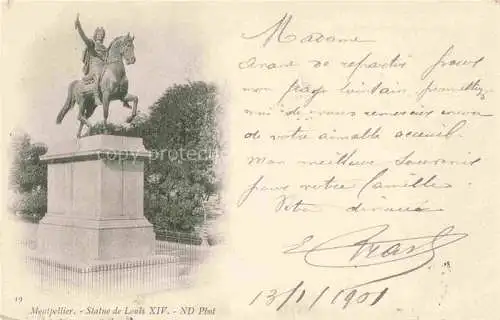 Madame
Avant de repartir pour
mon pays lointain, permettez
moi de vous remercier encore
de votre aimable accueil.
Mon meilleur souvenir
pour votre famille.
Votre dévoué
13/1/1901
19
Montpellier. - Statue de Louis XIV. - ND Phot